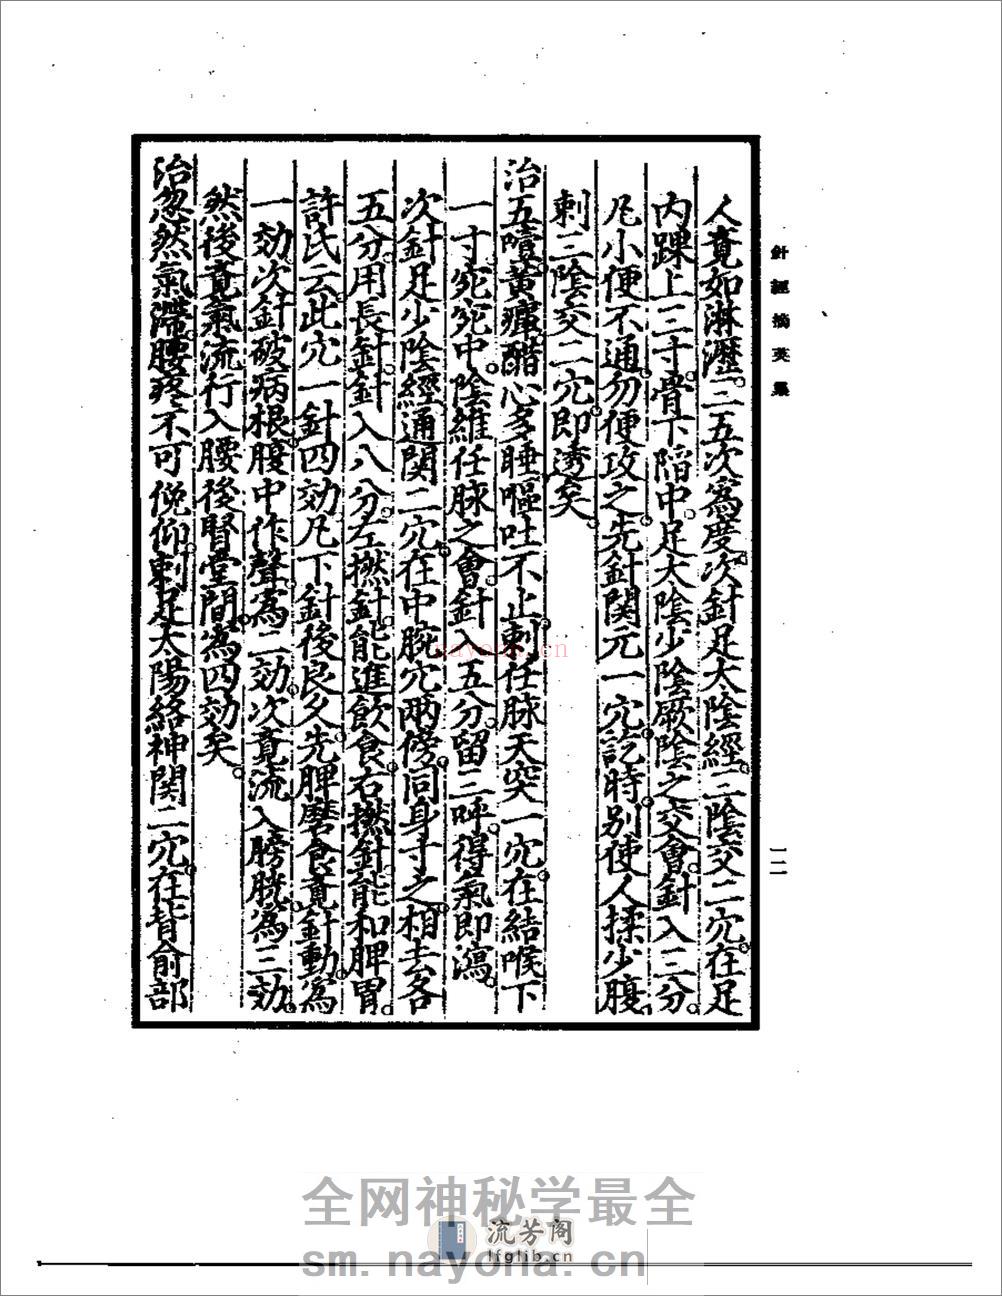 針經摘英集
一二
人竟如淋瀝三五次為度次針足太陰經三陰交二穴在足
內踝上三寸骨下陷中足太陰少陰厥陰之交會針入三分
凡小便不通勿便攻之先針関元一穴訖時別使人揉少腹
刺三陰交二穴即透矣
治五噎黃癉醋心多睡嘔吐不止刺任脉天突一穴在結喉下
一寸宛宛中陰維任脉之會針入五分留三呼得氣即瀉
次針足少陰經通関二穴在中脘穴兩傍同身寸之相去各
五分用長針針入八分左撚針能進飲食右撚針能和脾胃
許氏云此穴一針四効凡下針後良久先脾磨食竟針動為
一効次針破病根腹中作聲為二効次竟流入膀胱為三効
然後竟氣流行入腰後腎堂間為四効矣
治忽然氣滯腰疼不可俛仰刺足太陽絡神関二穴在背俞部
nayona.cn
全网神秘学最全
流芳阁
lfglib.cn
sm.nayona.cn